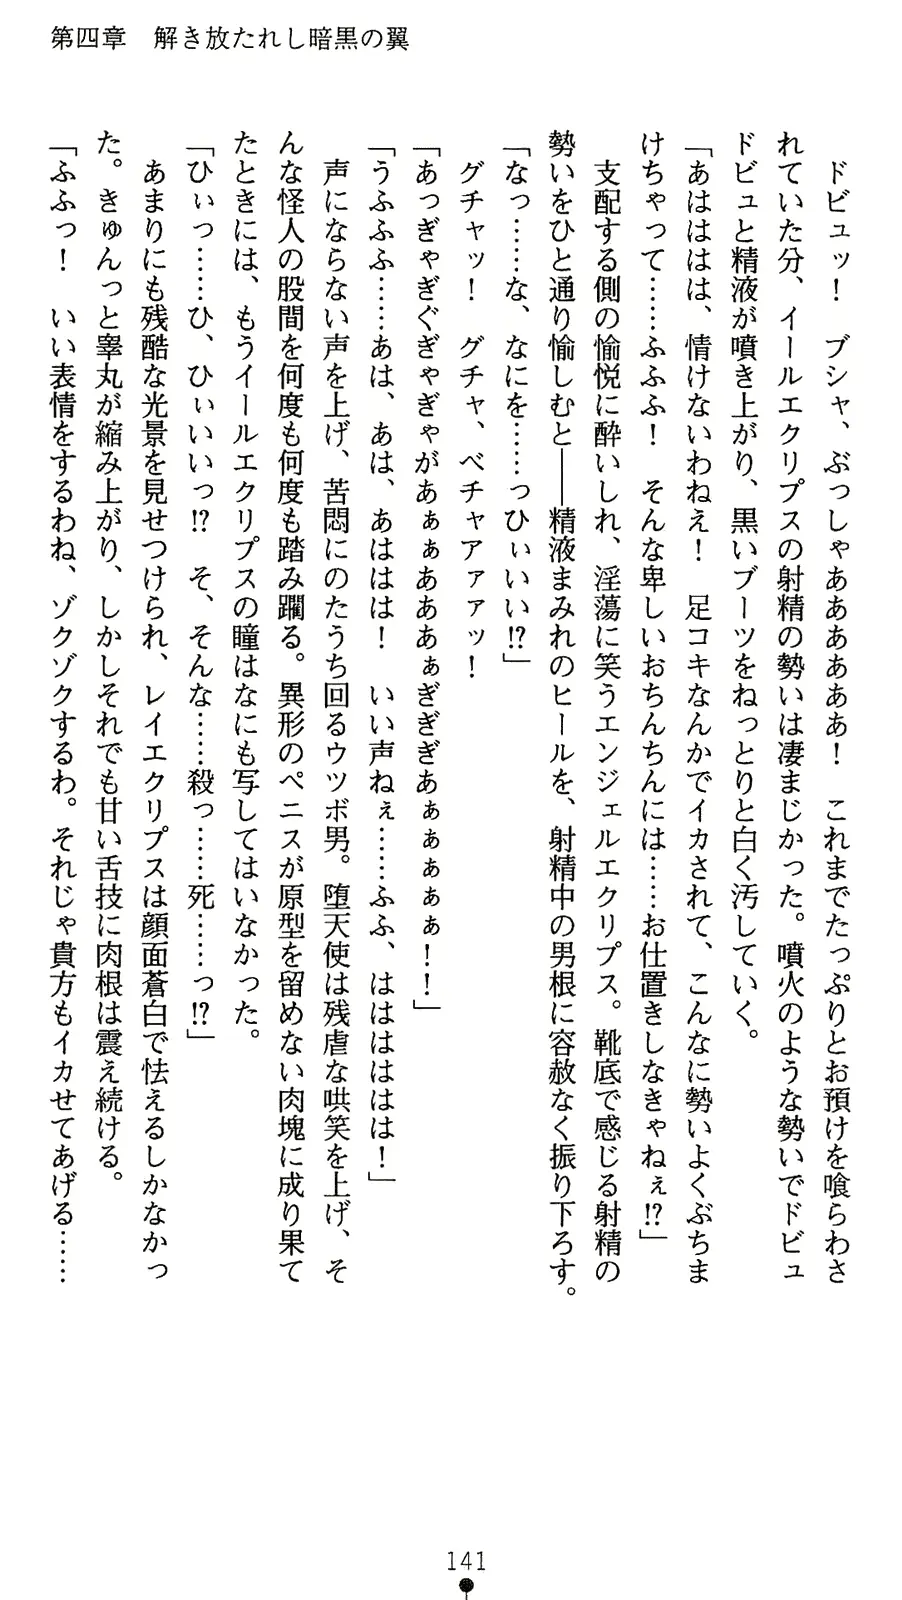 第四章　解き放たれし暗黒の翼
　ドビュッ！　ブシャ、ぶっしゃああああああ！　これまでたっぷりとお預けを喰らわさ
れていた分、イールエクリプスの射精の勢いは凄まじかった。噴火のような勢いでドビュ
ドビュと精液が噴き上がり、黒いブーツをねっとりと白く汚していく。
「あはははは、情けないわねえ！　足コキなんかでイカされて、こんなに勢いよくぶちま
けちゃって……ふふふ！　そんな卑しいおちんちんには……お仕置きしなきゃねぇ!?」
　支配する側の愉悦に酔いしれ、淫蕩に笑うエンジェルエクリプス。靴底で感じる射精の
勢いをひと通り愉しむと――精液まみれのヒールを、射精中の男根に容赦なく振り下ろす。
「なっ……な、なにを……っひぃいい!?」
　グチャッ！　グチャ、ベチャアァァッ！
「あっぎゃぎぐぎゃぎゃがあぁぁあああぁぎぎぎあぁぁぁぁぁ！！」
「うふふふ……あは、あは、あははは！　いい声ねぇ……ふふ、はははははは！」
　声にならない声を上げ、苦悶にのたうち回るウツボ男。堕天使は残虐な哄笑を上げ、そ
んな怪人の股間を何度も何度も踏み躙る。異形のペニスが原型を留めない肉塊に成り果て
たときには、もうイールエクリプスの瞳はなにも写してはいなかった。
「ひぃっ……ひ、ひぃいいっ!?　そ、そんな……殺っ……死……っ!?」
　あまりにも残酷な光景を見せつけられ、レイエクリプスは顔面蒼白で怯えるしかなかっ
た。きゅんっと睾丸が縮み上がり、しかしそれでも甘い舌技に肉根は震え続ける。
「ふふっ！　いい表情をするわね、ゾクゾクするわ。それじゃ貴方もイカせてあげる……
141